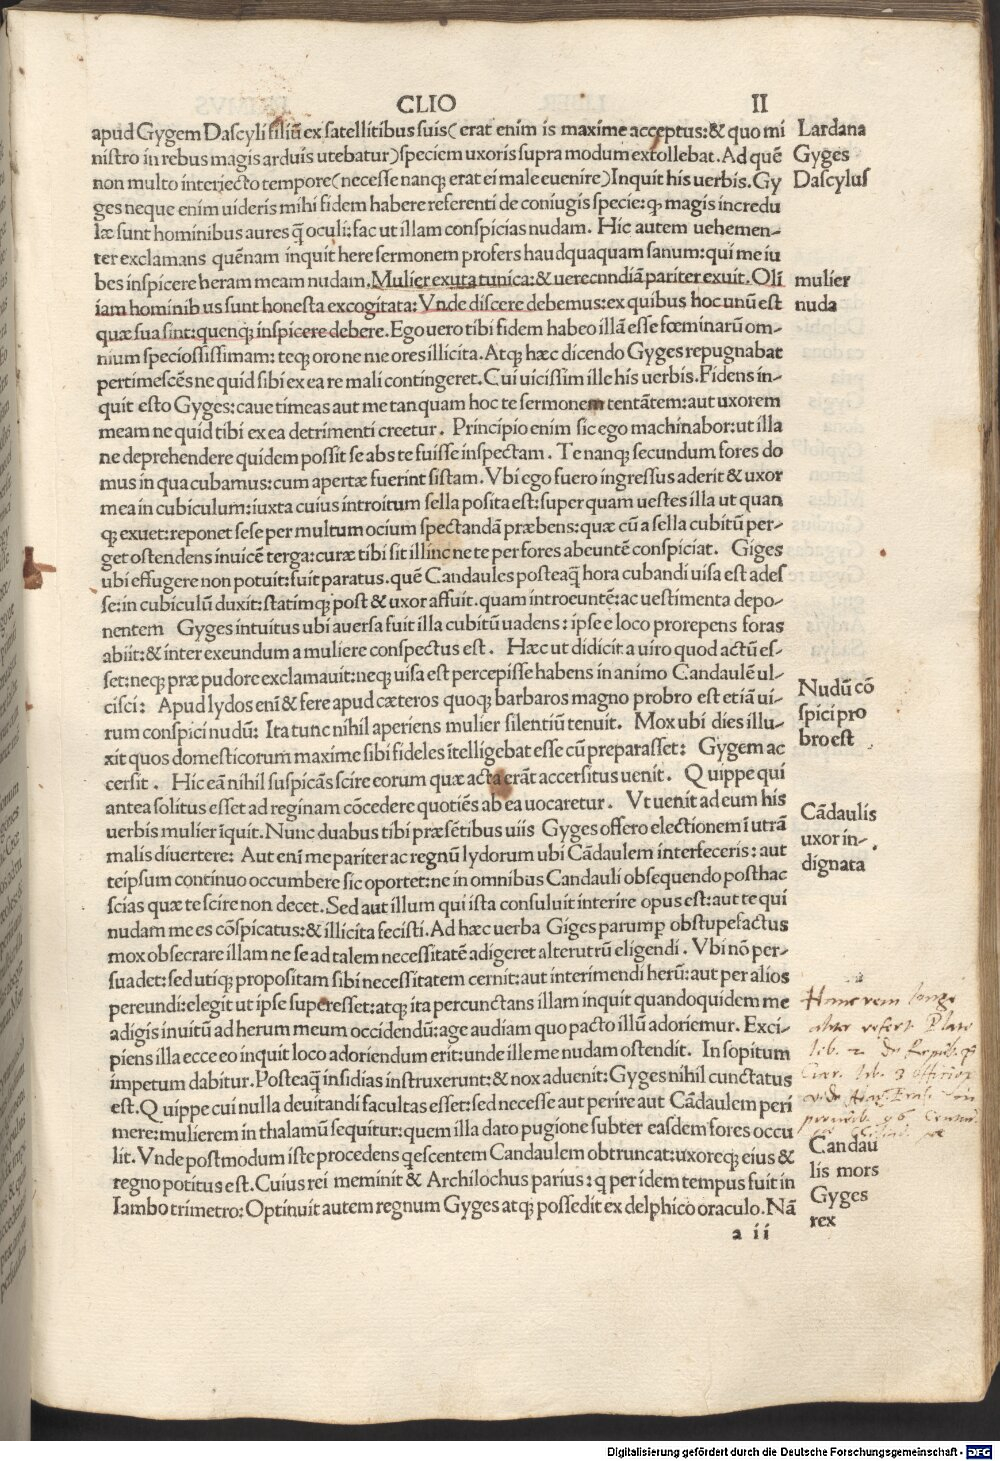 CLIO II
apud Gygem Dascyli filiū ex satellitibus suis( erat enim is maxime acceptus:& quo mi
nistro in rebus magis arduis utebatur) speciem uxoris supra modum extollebat. Ad quē
non multo interiecto tempore( necesse nanq; erat ei male euenire) Inquit his uerbis. Gy
ges neque enim uideris mihi fidem habere referenti de coniugis specie: q̨ magis incredu
læ sunt hominibus aures q̄ oculi: fac ut illam conspicias nudam. Hic autem uehemen-
ter exclamans quēnam inquit here sermonem profers haudquaquam sanum: qui me iu
bes inspicere heram meam nudam. Mulier exuta tunica: & uerecnndiā pariter exuit. Oli
iam hominibus sunt honesta excogitata: Vnde discere debemus: ex quibus hoc unū est
quæ sua sint: quenq; inspicere debere. Ego uero tibi fidem habeo illā esse fœminarū om-
nium speciossissimam: teq; oro ne me ores illicita. Atq; hæc dicendo Gyges repugnabat
pertimescēs ne quid sibi ex ea re mali contingeret. Cui uicissim ille his uerbis. Fidens in-
quit esto Gyges: caue timeas aut me tanquam hoc te sermonem tentātem: aut uxorem
meam ne quid tibi ex ea detrimenti creetur. Principio enim sic ego machinabor: ut illa
ne deprehendere quidem possit se abs te fuisse inspectam. Te nanq; secundum fores do
mus in qua cubamus: cum apertæ fuerint sistam. Vbi ego fuero ingressus aderit & uxor
mea in cubiculum: iuxta cuius introitum sella posita est: super quam uestes illa ut quan
q; exuet: reponet sese per multum ocium spectandā præbens: quæ cū a sella cubitū per-
get ostendens inuicē terga: curæ tibi sit illinc ne te per fores abeuntē conspiciat. Giges
ubi effugere non potuit: fuit paratus. quē Candaules posteaq̄ hora cubandi uisa est ades
se: in cubiculū duxit: statimq; post & uxor affuit. quam introeuntē: ac uestimenta depo-
nentem Gyges intuitus ubi auersa fuit illa cubitū uadens: ipse e loco prorepens foras
abiit: & inter exeundum a muliere conspectus est. Hæc ut didicit a uiro quod actū es-
set: neq; præ pudore exclamauit: neq; uisa est percepisse habens in animo Candaulē ul-
cisci: Apud lydos enī & fere apud cæteros quoq; barbaros magno probro est etiā ui-
rum conspici nudū: Ita tunc nihil aperiens mulier silentiū tenuit. Mox ubi dies illu-
xit quos domesticorum maxime sibi fideles ītelligebat esse cū preparasset: Gygem ac
cersit. Hic eā nihil suspicās scire eorum quæ acta erāt accersitus uenit. Quippe qui
antea solitus esset ad reginam cōcedere quotiēs ab ea uocaretur. Vt uenit ad eum his
uerbis mulier īquit. Nunc duabus tibi præsētibus uiis Gyges offero electionem ī utrā
malis diuertere: Aut enī me pariter ac regnū lydorum ubi Cādaulem interfeceris: aut
teipsum continuo occumbere sic oportet: ne in omnibus Candauli obsequendo posthac
scias quæ te scire non decet. Sed aut illum qui ista consuluit interire opus est: aut te qui
nudam me es cōspicatus: & illicita fecisti. Ad hæc uerba Giges parump̱ obstupefactus
mox obsecrare illam ne se ad talem necessitatē adigeret alterutrū eligendi. Vbi nō per-
suadet: sed utiq; propositam sibi necessitatem cernit: aut interimendi herū: aut per alios
pereundi: elegit ut ipse superesset: atq; ita percunctans illam inquit quandoquidem me
adigis inuitū ad herum meum occidendū: age audiam quo pacto illū adoriemur. Exci-
piens illa ecce eo inquit loco adoriendum erit: unde ille me nudam ostendit. In sopitum
impetum dabitur. Posteaq̄ insidias instruxerunt: & nox aduenit: Gyges nihil cunctatus
est. Quippe cui nulla deuitandi facultas esset: sed necesse aut perire aut Cādaulem peri
mere: mulierem in thalamū sequitur: quem illa dato pugione subter easdem fores occu
lit. Vnde postmodum iste procedens q̇escentem Candaulem obtruncat: uxoreq; eius &
regno potitus est. Cuius rei meminit & Archilochus parius: q per idem tempus fuit in
Iambo trimetro: Optinuit autem regnum Gyges atq; possedit ex delphico oraculo. Nā
a ii
Lardana
Gyges
Dascylus
mulier
nuda
Nudū cō
spici pro
bro est
Cādaulis
uxor in-
dignata
Hanc rem longe
aliter refert Plato
lib. 2 de Repub.
Cicer. lib. 3 officior
Candau
lis mors
Gyges
rex
Digitalisierung gefördert durch die Deutsche Forschungsgemeinschaft - DFG